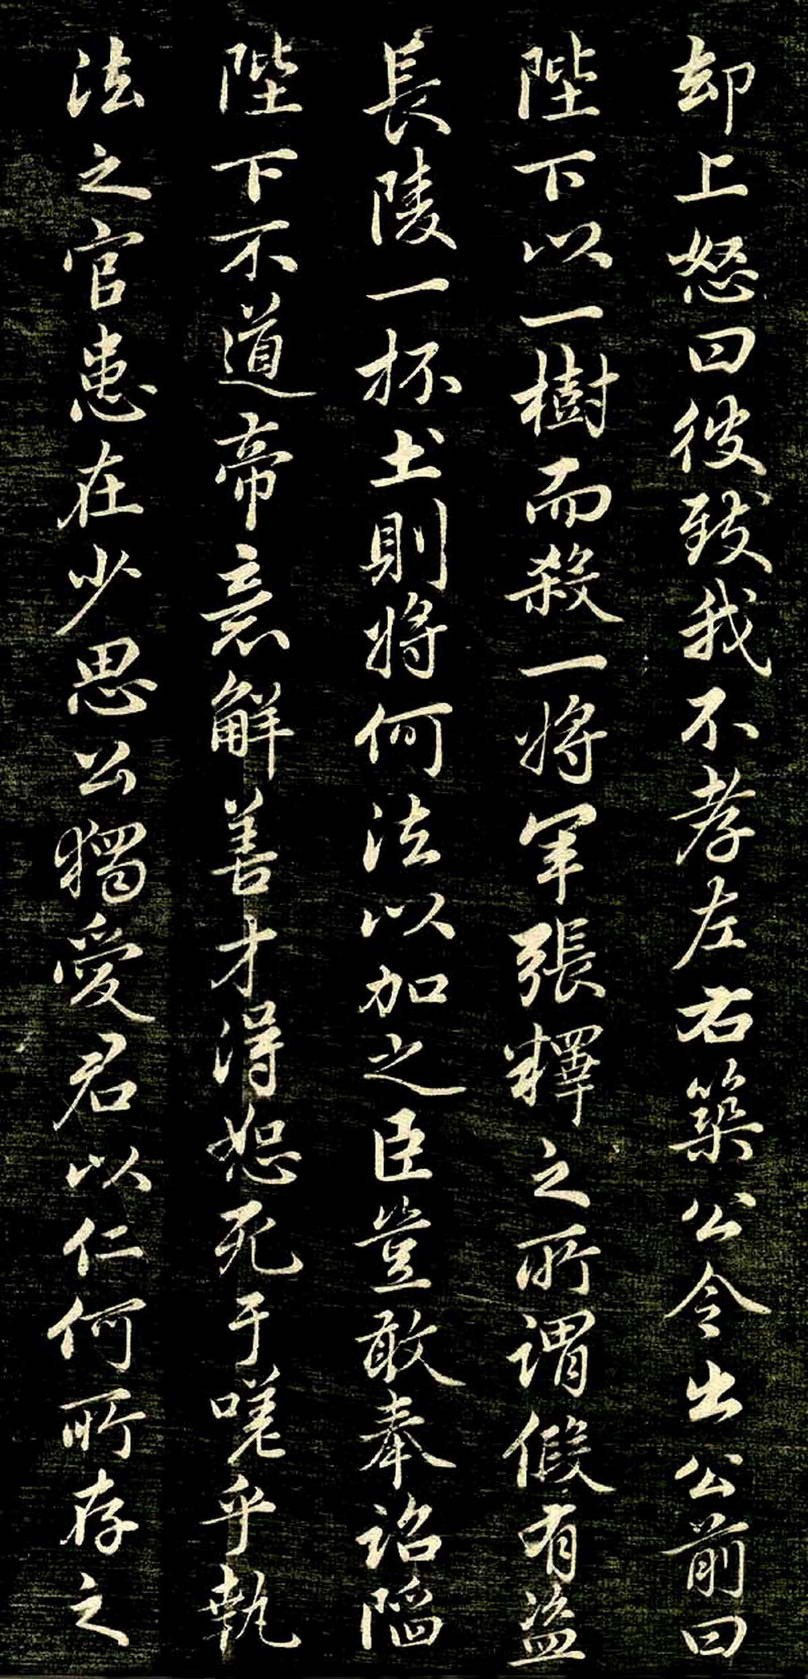 却上怒曰彼致我不孝左右築公令出公前曰
陛下以一樹而殺一將軍張釋之所謂假有盜
長陵一抔土則將何法以加之臣豈敢奉詔陷
陛下不道帝意解善才得恕死于嗟乎執
法之官患在少恩公獨愛君以仁何所存之